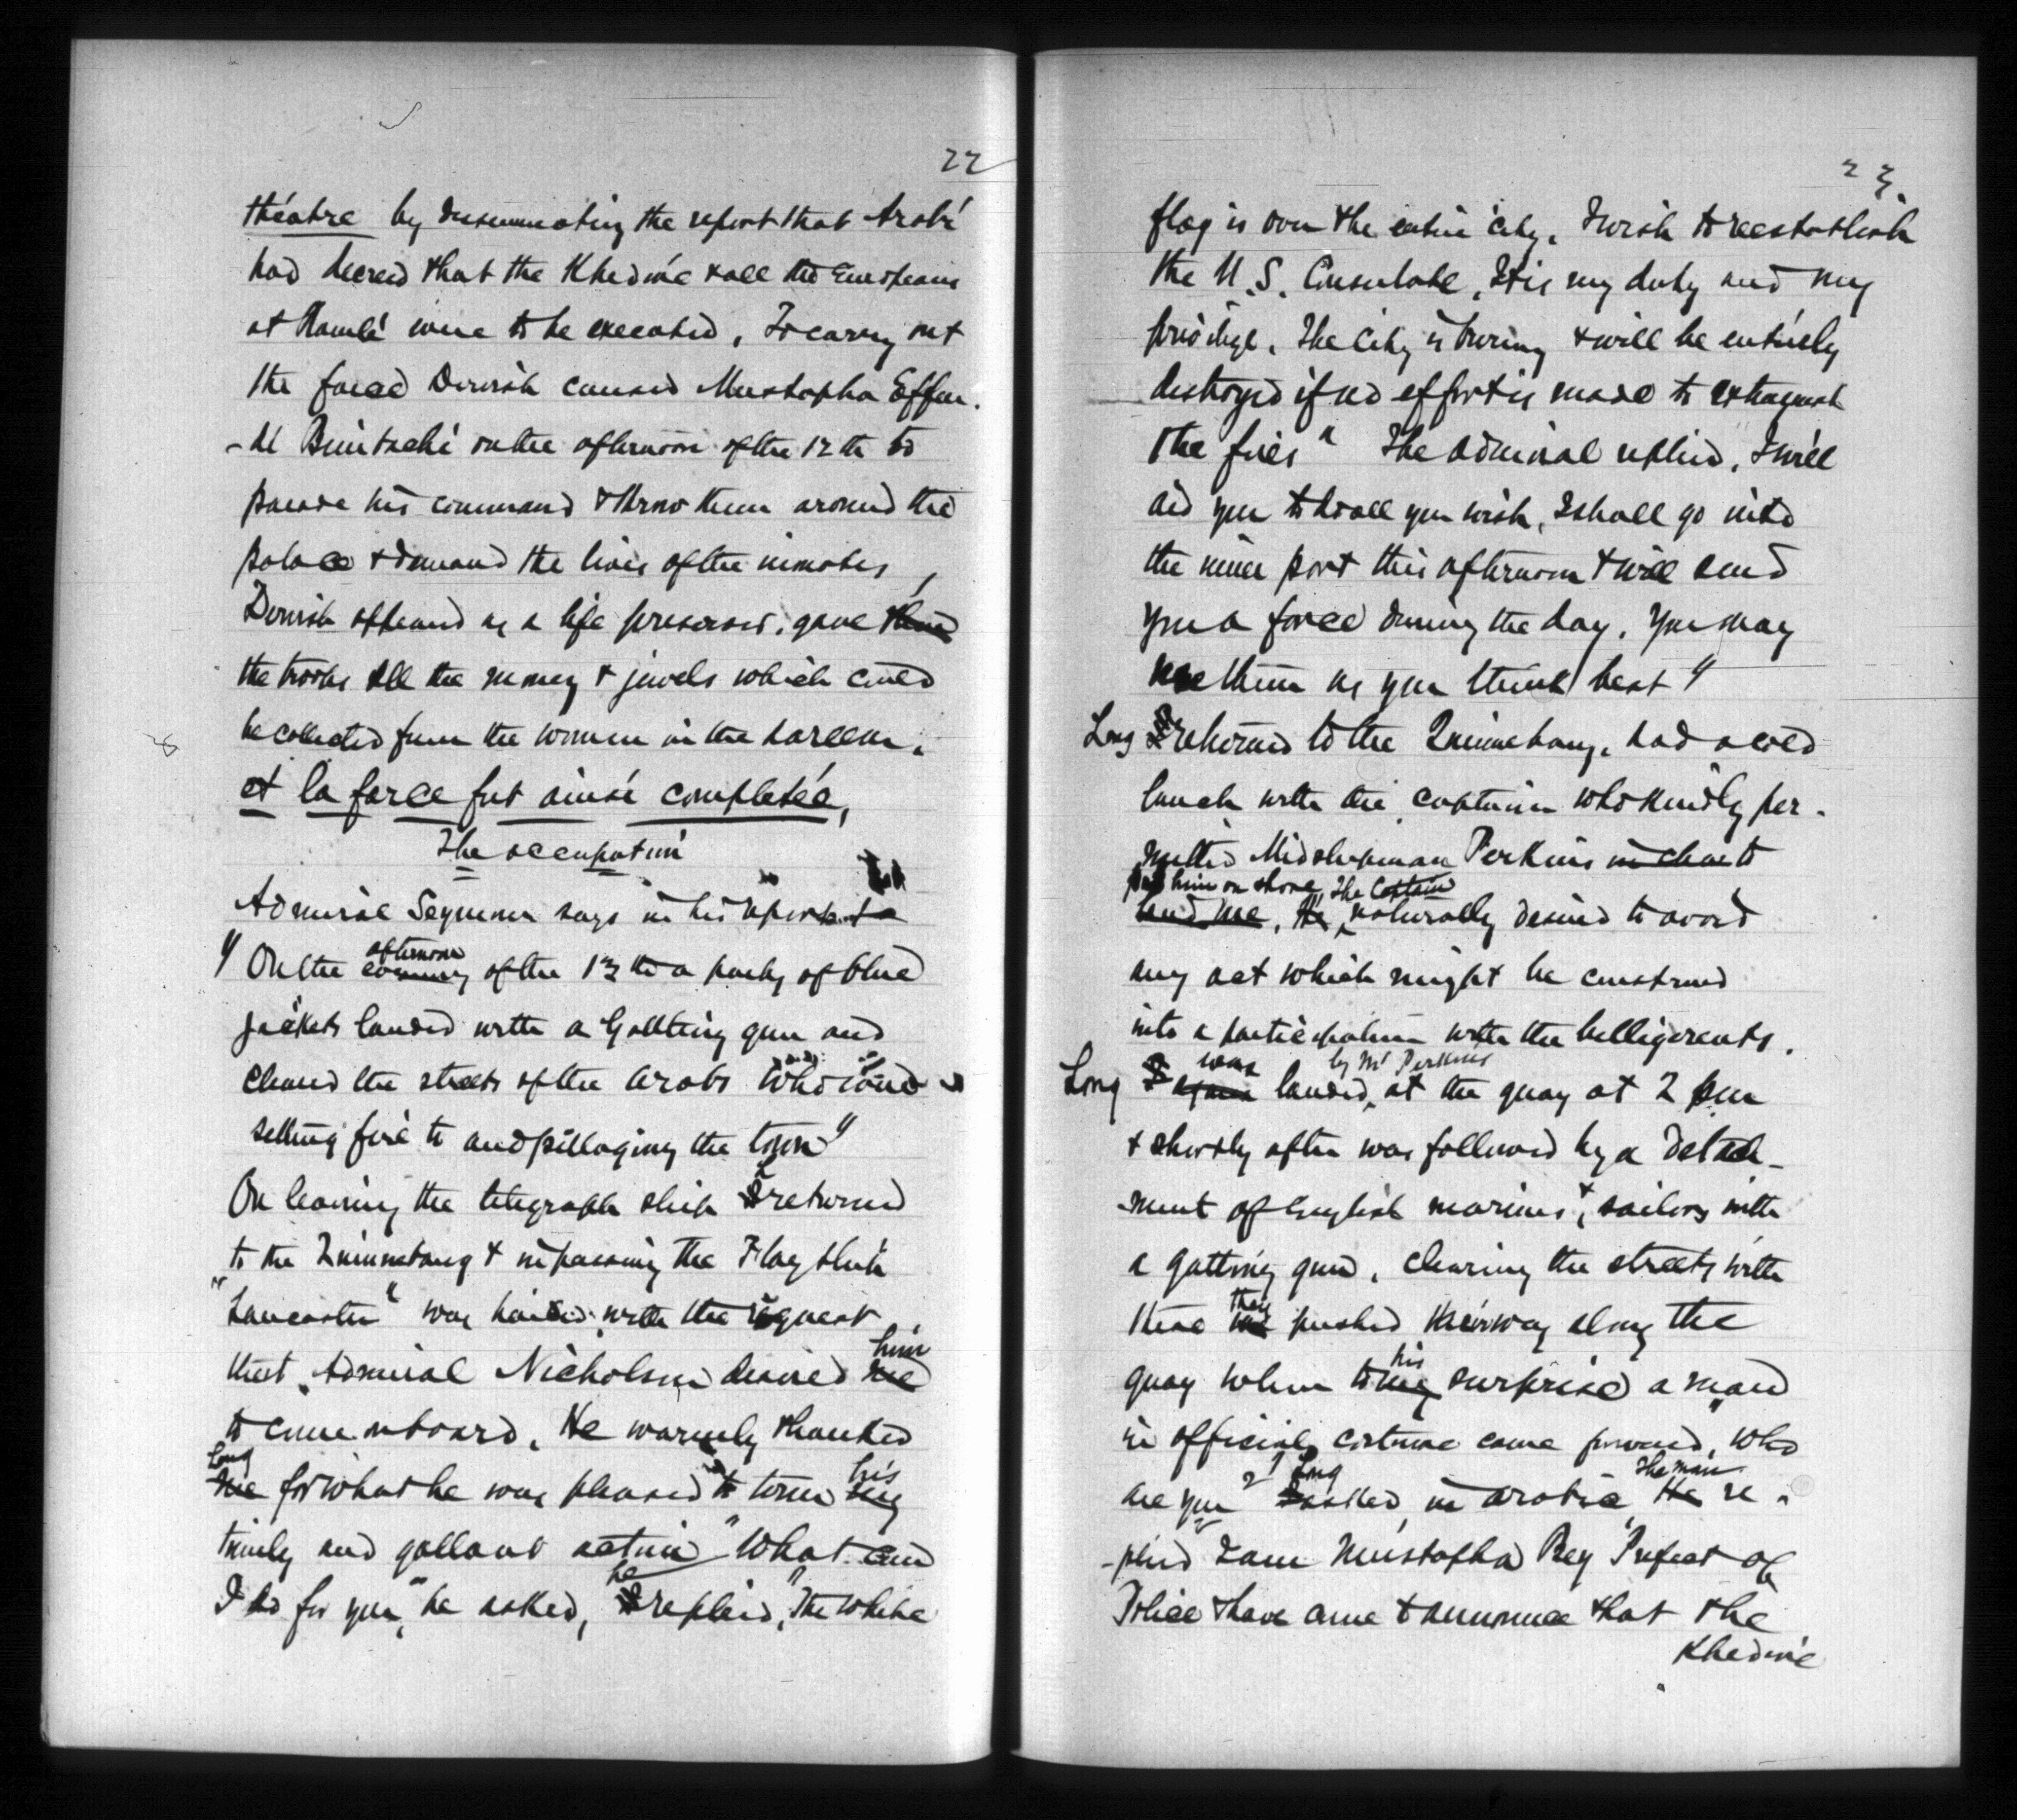 22
théatre by dissemenating the report that Arabi
had decreed that the Khedive & all the Europeans
at Ramlé were to be executed. To carry out
the farce Dervish caused Mustapha Effen-
-di Bimbachi on the afternoon of the 12th to
parade his command & throw them around the
palace & demand the lives of the inmates,
Dervish appeared as a life preserver, gave them
the troops all the money & jewels which could
be collected from the women in the hareem.
et la farce fut ainsi completée,
The occupation
Admiral Seymour says in his report
afternoon
"On the evening of the 13th a party of blue
jackets landed with a Gattling gun and
cleared the streets of the Arabs who were
setting fire to and pillaging the town"
On leaving the telegraph ship I returned
to the Quinnebaug & in passing the Flag ship
"Lancaster" was hailed with the request
him
that Admiral Nicholson desired me
to come onboard. He warmly thanked
Long his
me for what he was pleased to term my
timely and gallant action "What can
he
I do for you," he asked, I replied, "The white
23.
flag is over the entire city. I wish to reestablish
the U.S. Consulate, It is my duty and my
privilege. The City is burning & will be entirely
destroyed if no effort is made to extinguish
the fires" The Admiral replied, I will
aid you to do all you wish, I shall go into
the inner port this afternoon & will send
you a force during the day. You may
use them as you think best"
Long I returned to the Quinnebaug, had a cold
lunch with the captain who kindly per-
mitted Midshipman Perkins to
put him on shore, The Captain
land me, He naturally desired to avoid
any act which might be construed
into a participation with the belligerents.
was by Mr Perkins
Long I again landed at the quay at 2 pm
& shortly after was followed by a detach-
-ment of English marines & sailors with
a gatting gun, clearing the streets with
they
these we pushed their way along the
his
quay when to my surprise a man
in official costume came forward, Who
Long The man
are you I asked in Arabic, He re-
-plied I am Mustapha Bey Prefect of
Police & have come to announce that the
Khedive